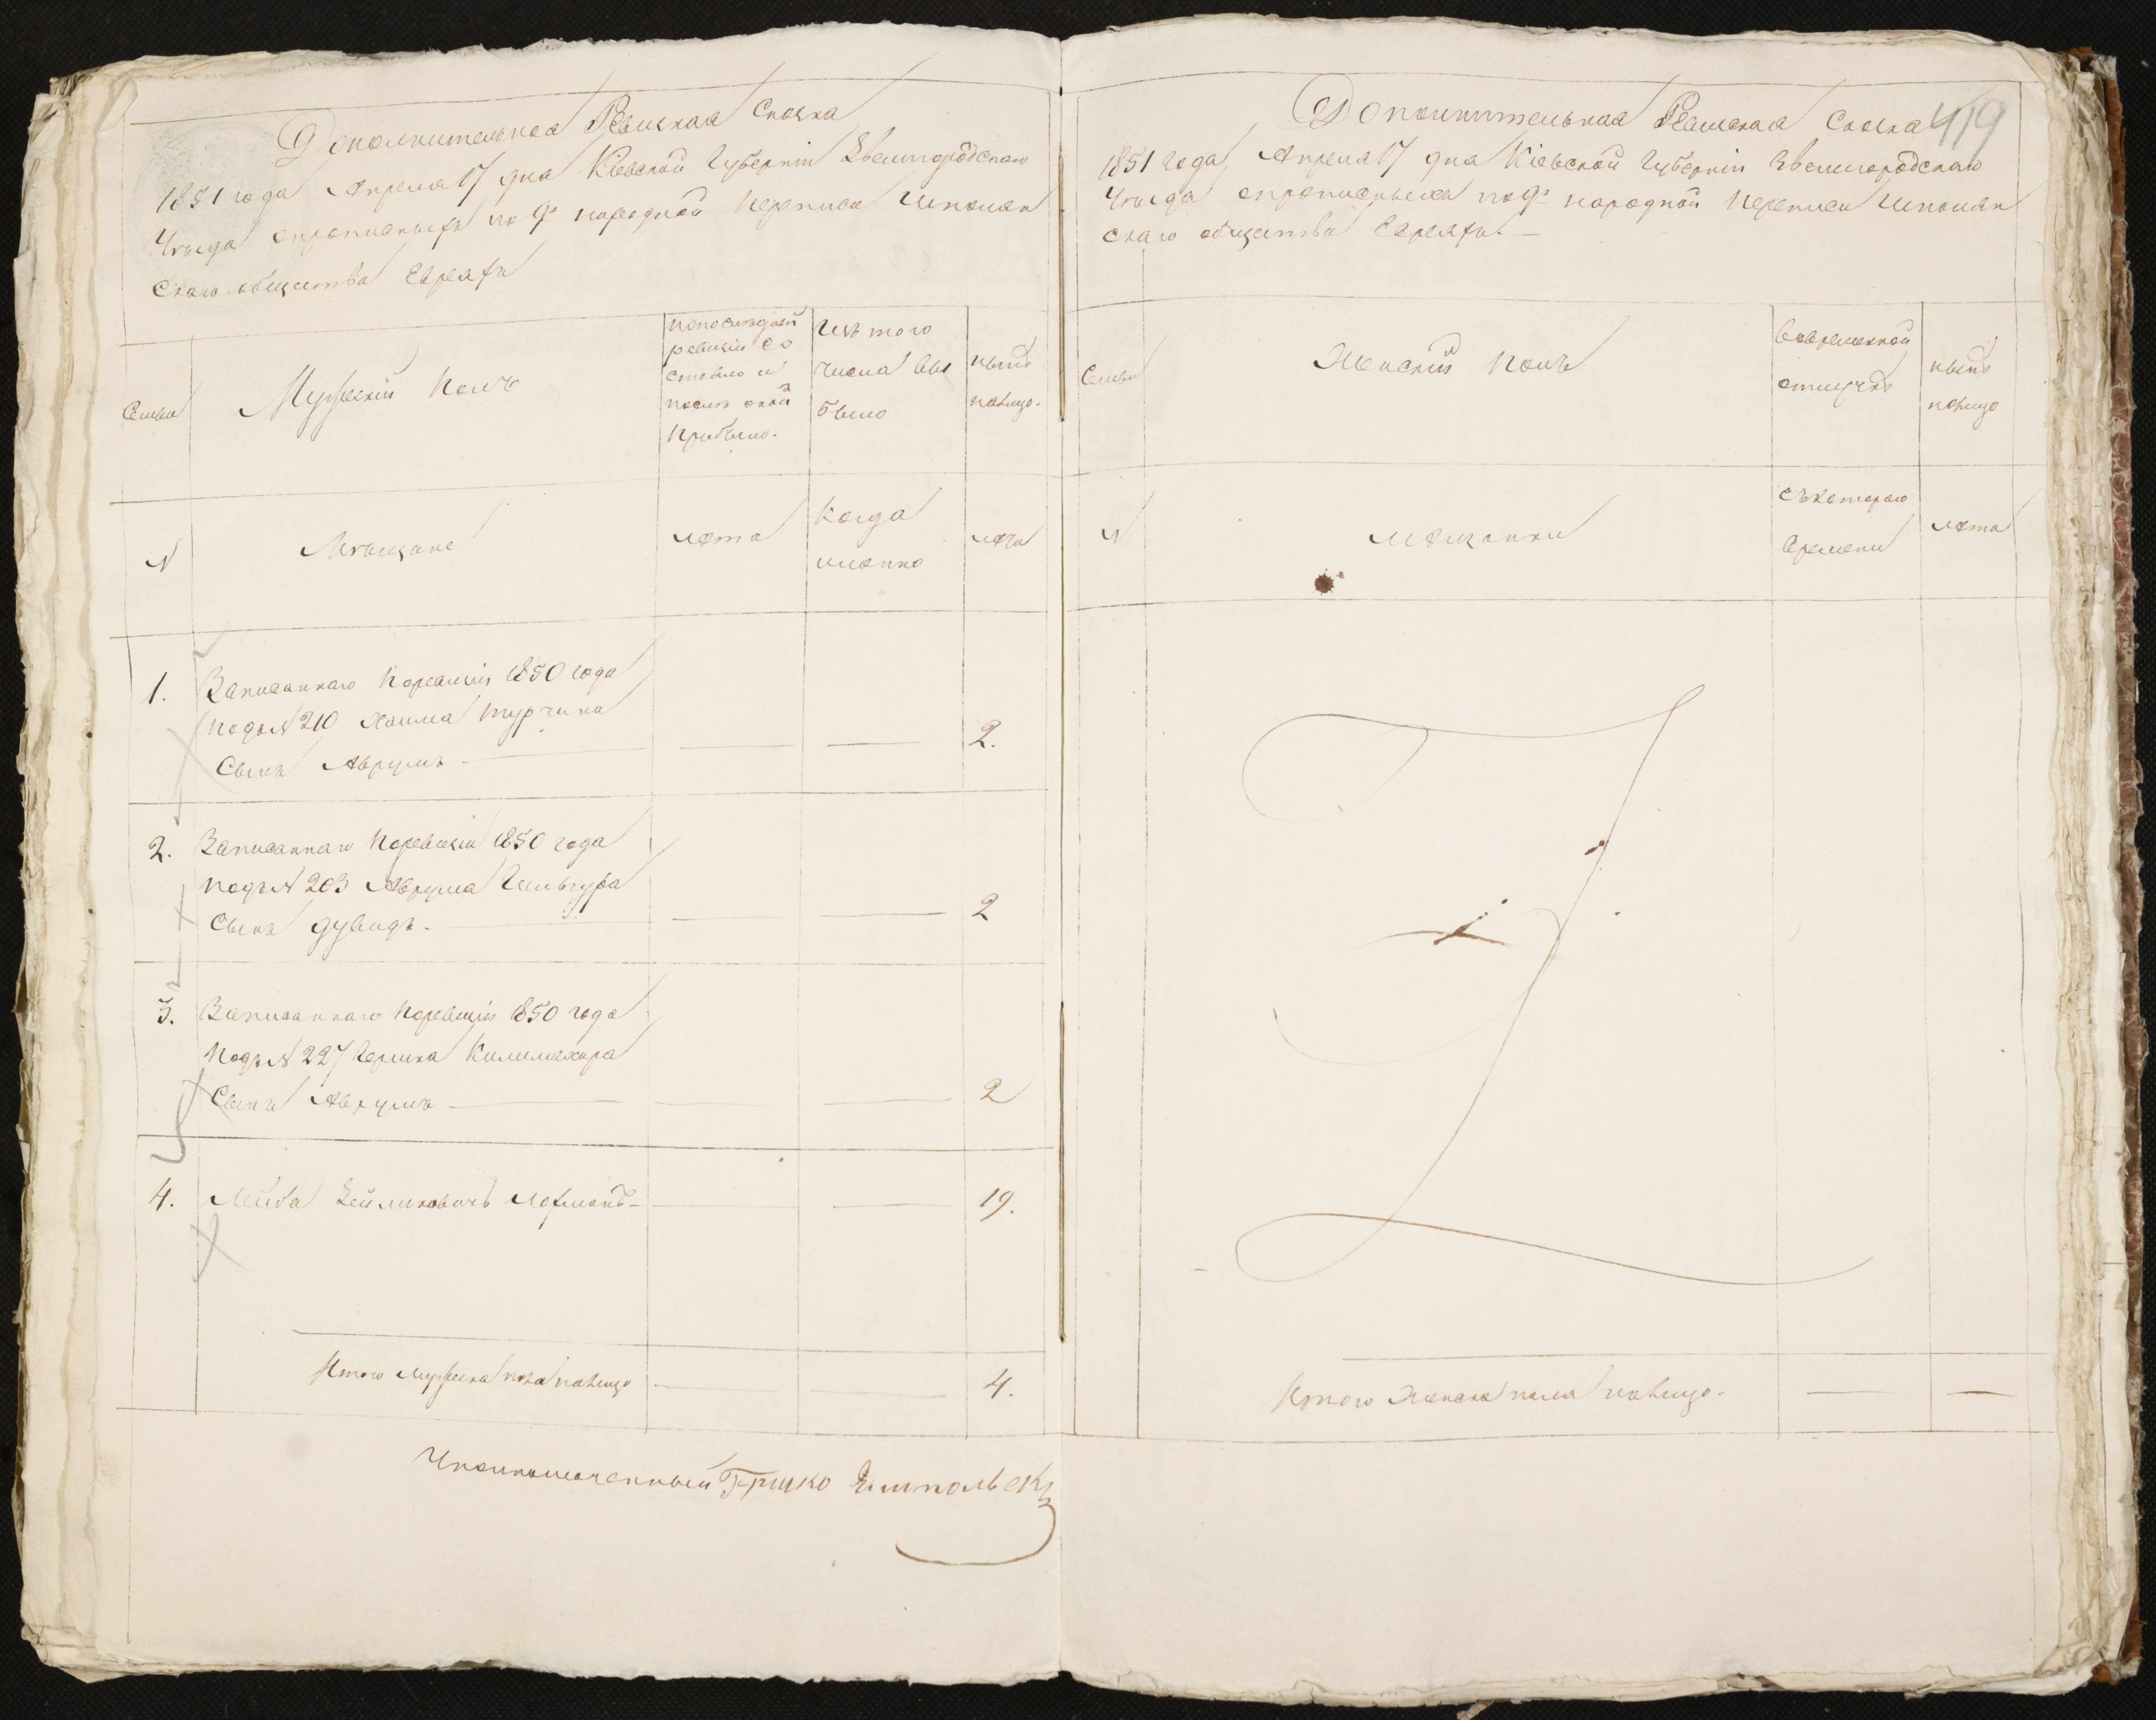 Дополнительная Ревизская Сказка
1851 года Апреля 17 дня Кіевской Губерніи Звенигородскаго
Уѣзда о прописныхъ по 9й народной переписи Шполян
скаго общества Евреяхъ
Семьи
Мужескій полъ
По последней
ревизіи со
стояло и
послѣ оной
прибыло.
Изъ того
числа вы
было
нынѣ
налицо.
N
Мѣщане
лета
Когда
именно
лета
1. Записаннаго поревизіи 1850 года
подъ N 210 Хаима Турчина
Сынъ Аврумъ 2.
2. Записаннаго поревизіи 1850 года
подъ N 203 Аврума
Сынъ Дувидъ. 2
3. Записаннаго поревизіи 1850 года
подъ N 227 Гершка
Сынъ Аврумъ 2
4. Лейба Зейликовичъ 19.
Итого мужеска пола налицо 4.
Уполномоченный Грицко
419
Дополнительная Ревизская Сказка
1851 года Апреля 17 дня Кіевской Губерніи Звенигородскаго
Уѣзда о прописныхъ по 9й народной переписи Шполян
скаго общества Евреяхъ.
Семьи
Женскій полъ
Вовременной
отлучкѣ
нынѣ
налицо
N
мещанки
съ котораго
времени
лета
Итого женска пола налицо.